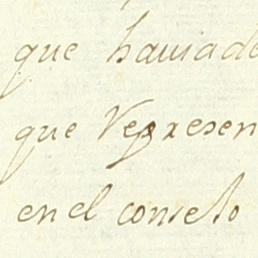 que haviade
que Represen
en el conselo